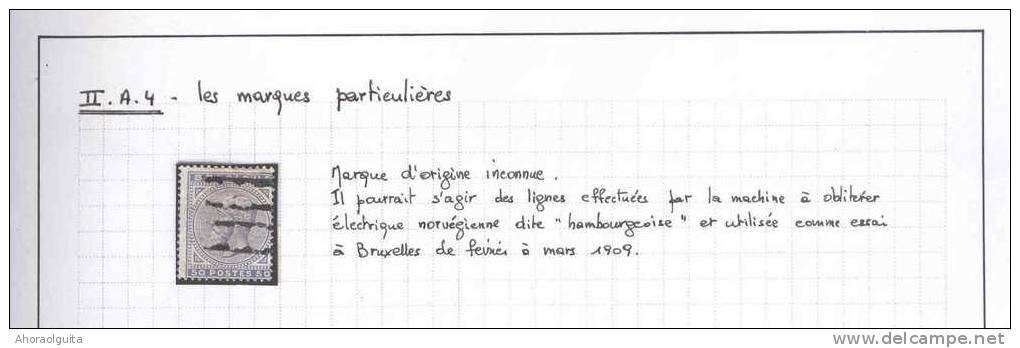 II.A.4 - les marques particulières
Marque d'origine inconnue.
Il pourrait s'agir des lignes effectuées par la machine à oblitérer
électrique norvégienne dite "hambourgeoise" et utilisée comme essai
à Bruxelles de fevrier à mars 1909.
50 POSTES 50
Ahoraolguita
www.delcampe.net